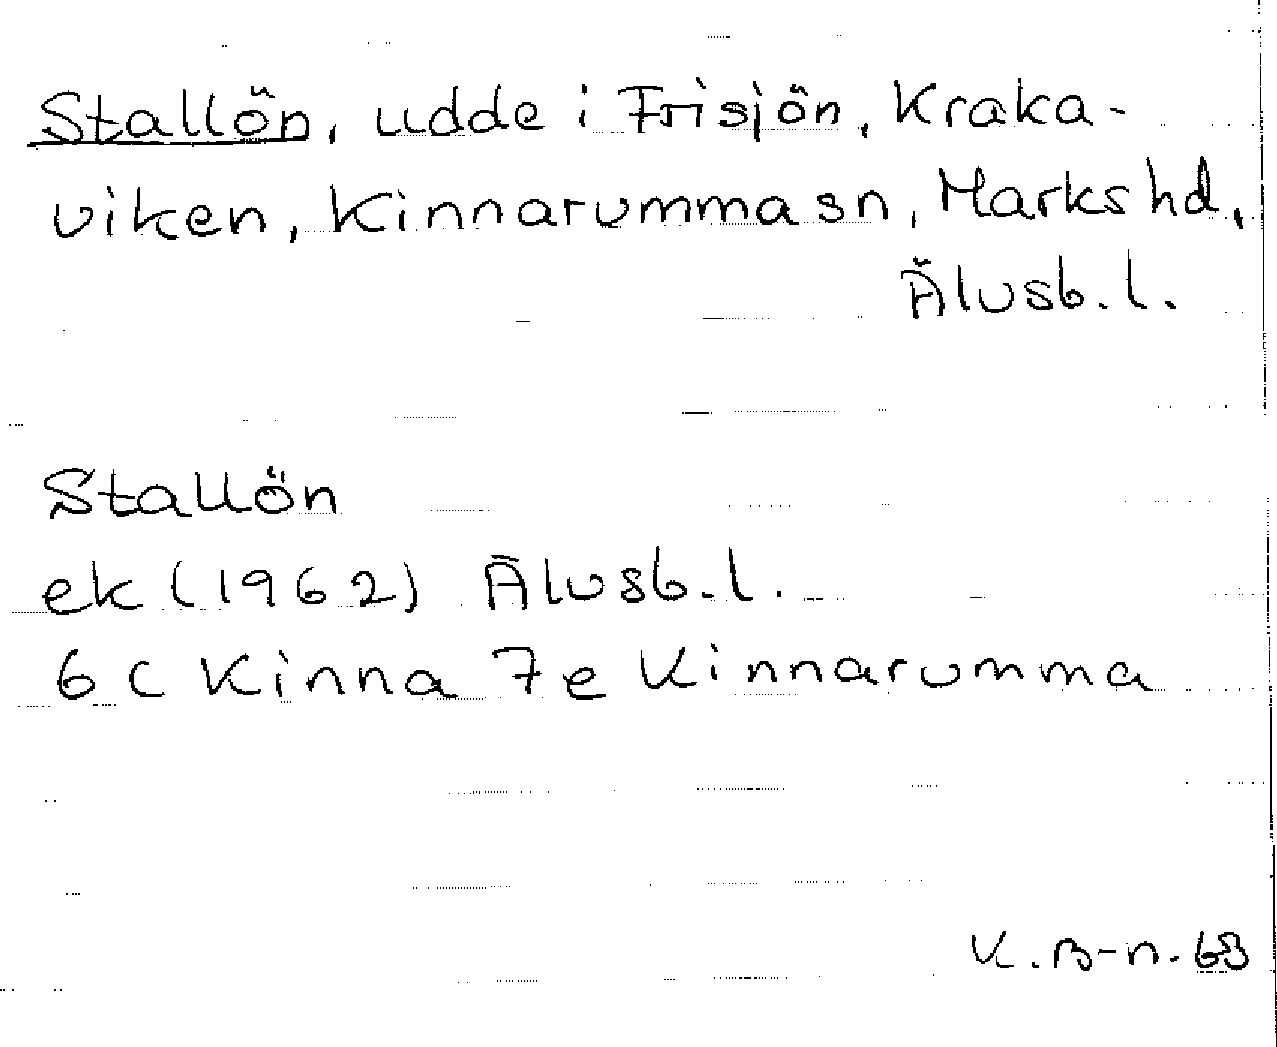 Stallön, udde i Frisjön, Kraka-
viken, Kinnarumma sn, Marks hd,
Älvsb. l.
Stallön
ek (1962) Älvsb. l.
6 C Kinna 7e Kinnarumma
K. B-n. 68